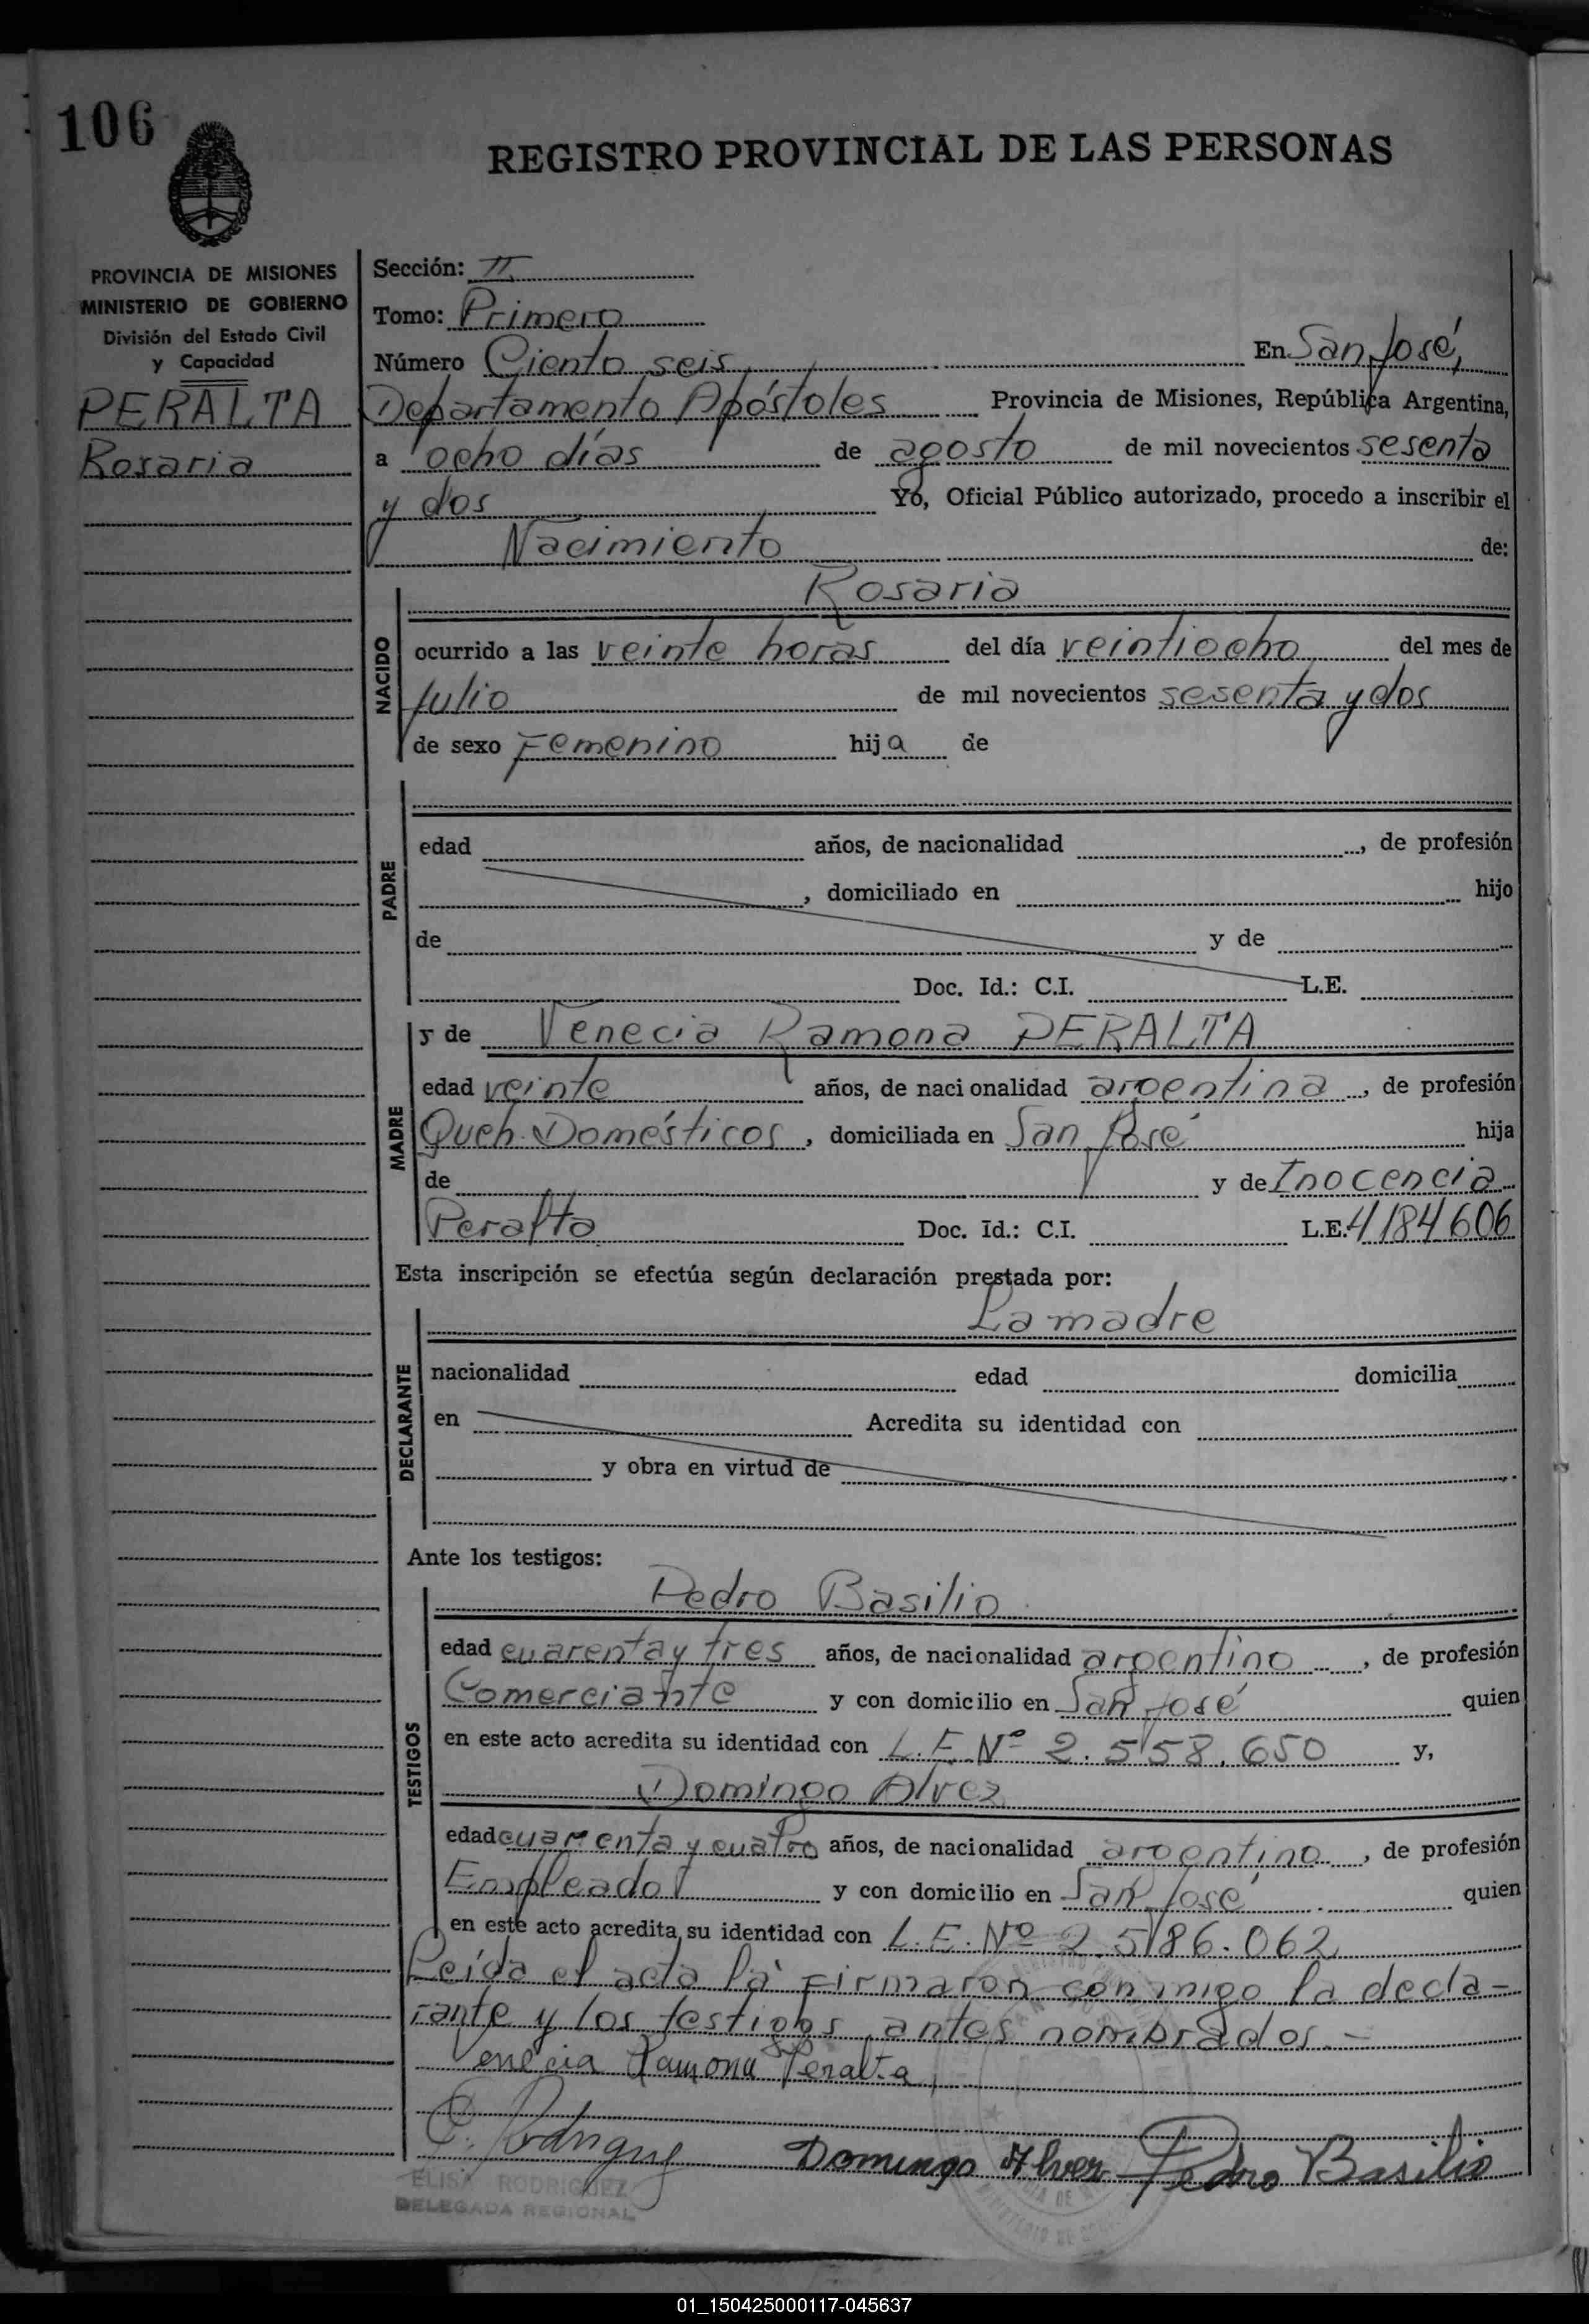 106
REGISTRO PROVINCIAL DE LAS PERSONAS
PROVINCIA DE MISIONES
MINISTERIO DE GOBIERNO
División del Estado Civil
y Capacidad
PERALTA
Rosaria
Sección: II
Tomo: Primero
Número Ciento seis En San José,
Departamento Apóstoles Provincia de Misiones, República Argentina,
a ocho días de agosto de mil novecientos sesenta
y dos Yo, Oficial Público autorizado, procedo a inscribir el
Nacimiento de:
NACIDO
Rosaria
ocurrido a las veinte horas del día veintiocho del mes de
Julio de mil novecientos sesenta y dos
de sexo Femenino hija de
PADRE
edad años, de nacionalidad , de profesión
, domiciliado en hijo
de y de
Doc. Id.: C.I. L.E.
MADRE
y de Venecia Ramona PERALTA
edad veinte años, de naci onalidad argentina , de profesión
Queh. Domésticos , domiciliada en San José hija
de y de Inocencia
Peralta Doc. Id.: C.I. L.E. 4184606
Esta inscripción se efectúa según declaración prestada por:
DECLARANTE
La madre
nacionalidad edad domicilia
en Acredita su identidad con
y obra en virtud de
Ante los testigos:
TESTIGOS
Pedro Basilio
edad cuarenta y tres años, de nacionalidad argentino , de profesión
Comerciante y con domicilio en San José quien
en este acto acredita su identidad con L.E. Nº 2.558.650 y,
Domingo Alvez
edad cuarenta y cuatro años, de nacionalidad argentino , de profesión
Empleado y con domicilio en San José quien
en este acto acredita su identidad con L.E. Nº 2.586.062
Leída el acta la firmaron conmigo la decla-
rante y los testigos antes nombrados.-
Venecia Ramona Peralta
E. Rodriguez Domingo Alvez Pedro Basilio
ELISA RODRIGUEZ
DELEGADA REGIONAL
01_150425000117-045637